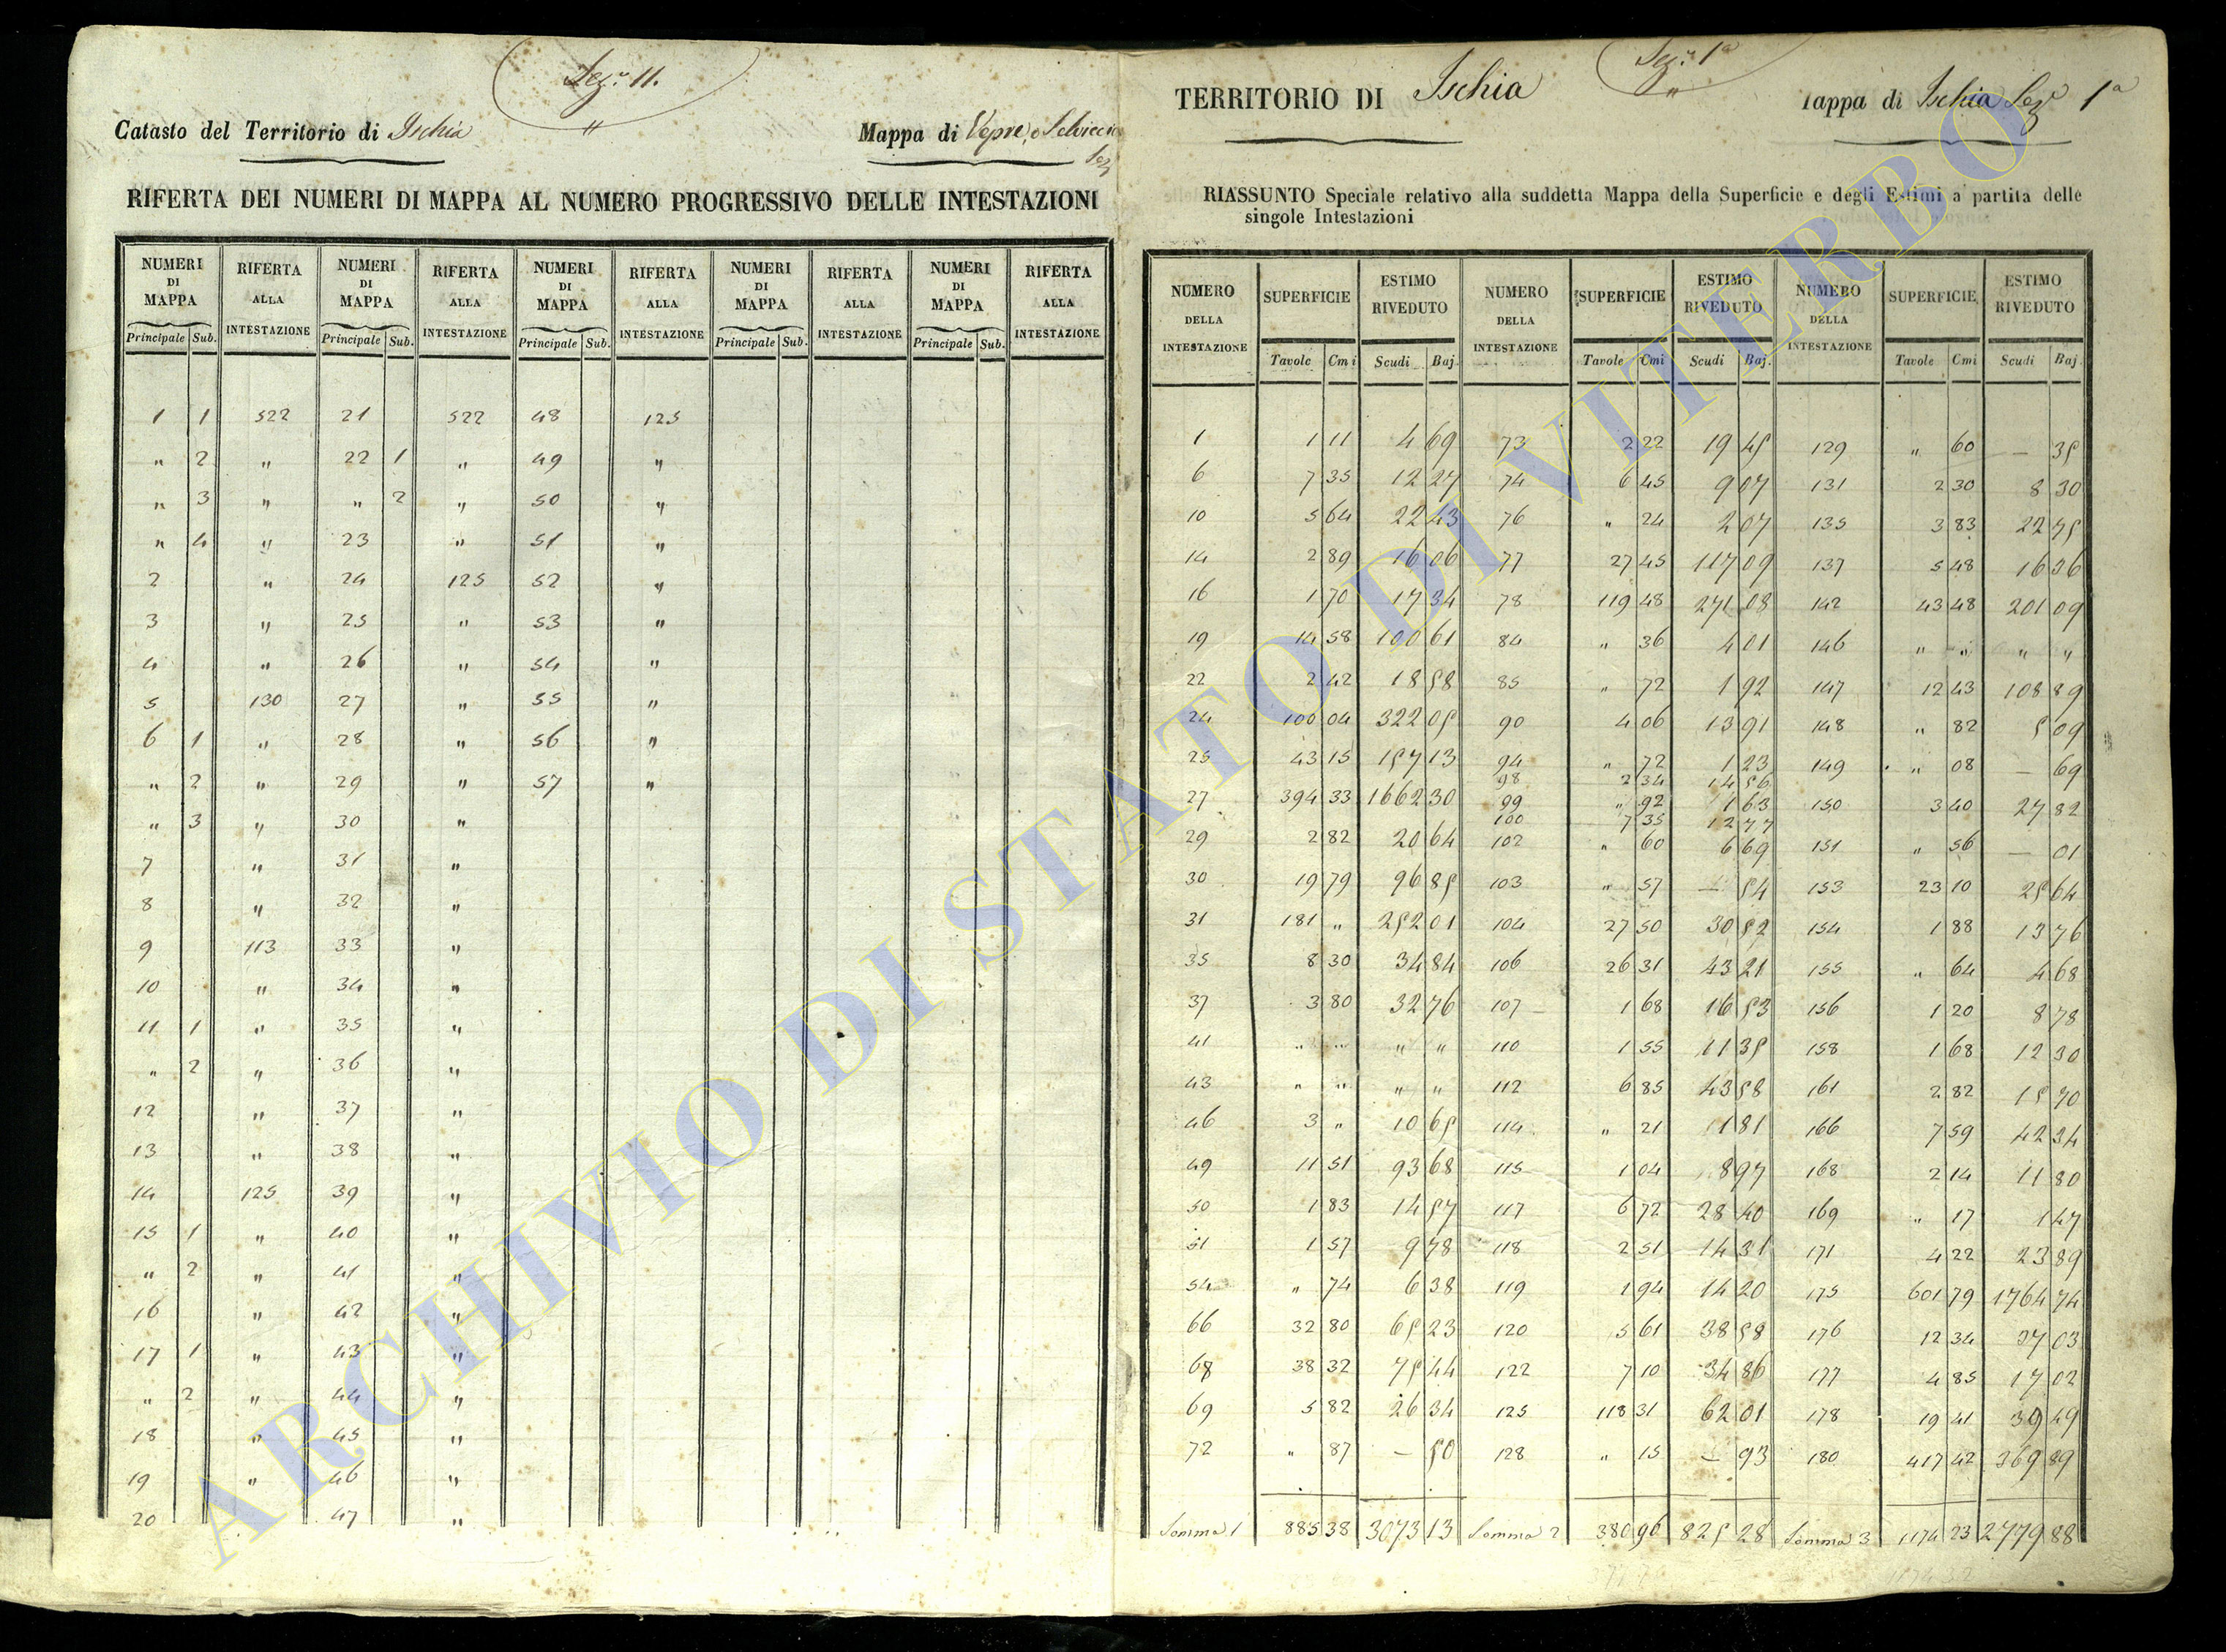 Sez.e 11.
"
Catasto del Territorio di Ischia
Mappa di Vepre, e Selvicciola
Sez
RIFERTA DEI NUMERI DI MAPPA AL NUMERO PROGRESSIVO DELLE INTESTAZIONI
NUMERI DI MAPPA RIFERTA ALLA INTESTAZIONE NUMERI DI MAPPA RIFERTA ALLA INTESTAZIONE NUMERI DI MAPPA RIFERTA ALLA INTESTAZIONE NUMERI DI MAPPA RIFERTA ALLA INTESTAZIONE NUMERI DI MAPPA RIFERTA ALLA INTESTAZIONE
Principale Sub. Principale Sub. Principale Sub. Principale Sub. Principale Sub.
1 1 522 21 522 48 125
" 2 " 22 1 " 49 "
" 3 " " 2 " 50 "
" 4 " 23 " 51 "
2 " 24 125 52 "
3 " 25 " 53 "
4 " 26 " 54 "
5 130 27 " 55 "
6 1 " 28 " 56 "
" 2 " 29 " 57 "
" 3 " 30 "
7 " 31 "
8 " 32 "
9 113 33 "
10 " 34 "
11 1 " 35 "
" 2 " 36 "
12 " 37 "
13 " 38 "
14 125 39 "
15 1 " 40 "
" 2 " 41 "
16 " 42 "
17 1 " 43 "
" 2 " 44 "
18 " 45 "
19 " 46 "
20 47 "
Sez.e 1a
"
TERRITORIO DI Ischia
Mappa di Ischia Sez.e 1a
RIASSUNTO Speciale relativo alla suddetta Mappa della Superficie e degli Estimi a partita delle
singole Intestazioni
NUMERO DELLA INTESTAZIONE SUPERFICIE ESTIMO RIVEDUTO NUMERO DELLA INTESTAZIONE SUPERFICIE ESTIMO RIVEDUTO NUMERO DELLA INTESTAZIONE SUPERFICIE ESTIMO RIVEDUTO
Tavole Cmi Scudi Baj. Tavole Cmi Scudi Baj. Tavole Cmi Scudi Baj.
1 1 11 4 69 73 2 22 19 45 129 " 60 — 35
6 7 35 12 27 74 6 45 9 07 131 2 30 8 30
10 5 64 22 43 76 " 24 2 07 135 3 83 22 75
14 2 89 16 06 77 27 45 117 09 137 5 48 16 36
16 1 70 17 34 78 119 48 271 08 142 43 48 201 09
19 14 58 100 61 84 " 36 4 01 146 " " " "
22 2 42 18 58 85 " 72 1 92 147 12 43 108 89
24 100 04 322 05 90 4 06 13 91 148 " 82 5 09
25 43 15 157 13 94 " 72 1 23 149 " 08 — 69
98 2 34 14 56
27 394 33 1662 30 99 " 92 1 63 150 3 40 27 82
100 7 35 12 77
29 2 82 20 64 102 " 60 6 69 151 " 56 — 01
30 19 79 96 85 103 " 57 — 54 153 23 10 25 64
31 181 " 252 01 104 27 50 30 52 154 1 88 13 76
35 8 30 34 84 106 26 31 43 21 155 " 64 4 68
37 3 80 32 76 107 1 68 16 53 156 1 20 8 78
41 " " " " 110 1 55 11 35 158 1 68 12 30
43 " " " " 112 6 85 43 58 161 2 82 15 70
46 3 " 10 65 114 " 21 1 81 166 7 59 42 34
49 11 51 93 68 115 1 04 8 97 168 2 14 11 80
50 1 83 14 57 117 6 72 28 40 169 " 17 1 47
51 1 57 9 78 118 2 51 14 31 171 4 22 23 89
54 " 74 6 38 119 1 94 14 20 175 601 79 1764 74
66 32 80 65 23 120 5 61 38 58 176 12 34 37 03
68 38 32 75 44 122 7 10 34 86 177 4 85 17 02
69 5 82 26 34 125 118 31 62 01 178 19 41 39 49
72 " 87 — 50 128 " 15 — 93 180 417 42 369 89
Somma 1 885 38 3073 13 Somma 2 380 96 825 28 Somma 3 1174 23 2779 88
ARCHIVIO DI STATO DI VITERBO